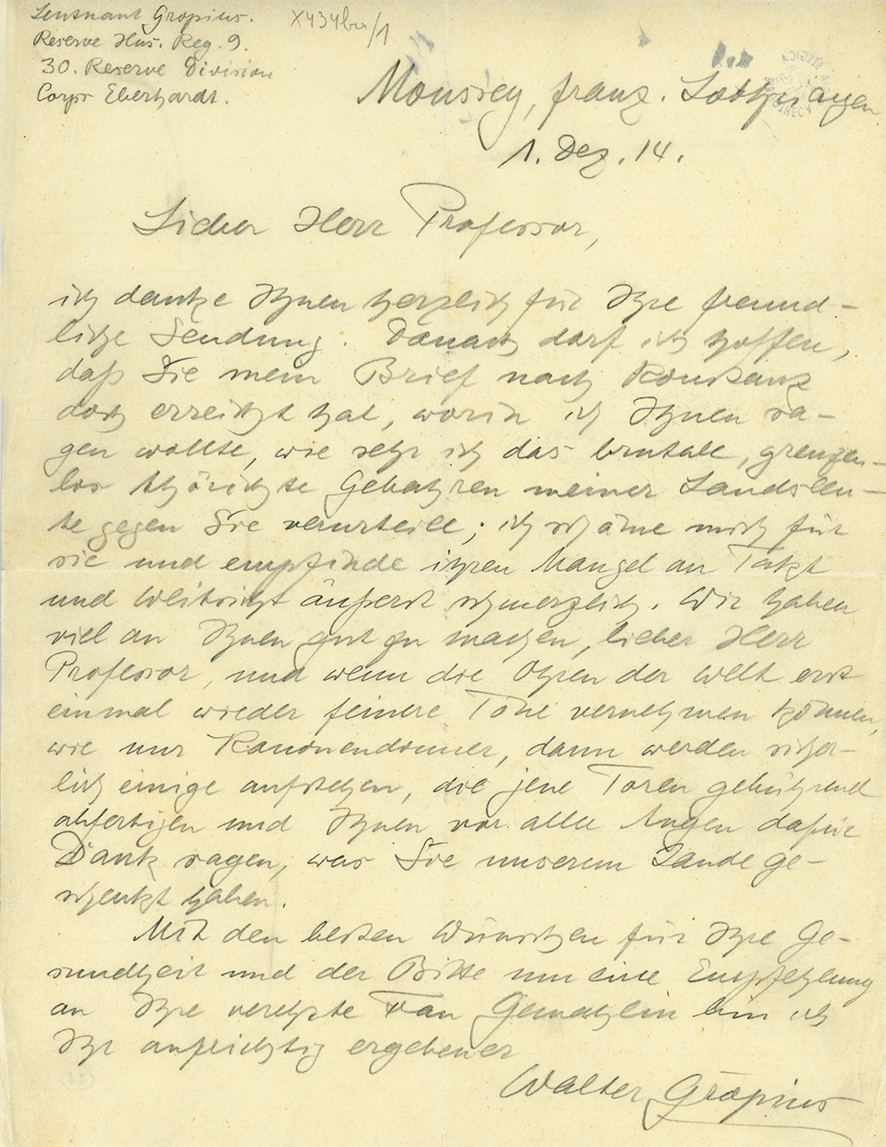 Leutnant Gropius.
Reserve Hus. Reg. 9.
30. Reserve Division
Corps Eberhardt.
X434bis/1
Moussey, franz. Lothringen
1. Dez. 14.
Lieber Herr Professor,
ich danke Ihnen herzlich für Ihre freund-
liche Sendung. Danach darf ich hoffen,
daß Sie mein Brief nach Konstanz
doch erreicht hat, worin ich Ihnen sa-
gen wollte, wie sehr ich das brutale, grenzen-
los thörichte Gebahren meiner Landsleu-
te gegen Sie verurteile; ich schäme mich für
sie und empfinde ihren Mangel an Takt
und Weitsicht äußerst schmerzlich. Wir haben
viel an Ihnen gut zu machen, lieber Herr
Professor, und wenn die Ohren der Welt erst
einmal wieder feinere Töne vernehmen können,
wie nur Kanonendonner, dann werden sicher-
lich einige aufstehen, die jene Toren gebührend
abfertigen und Ihnen vor aller Augen dafür
Dank sagen, was Sie unserem Lande ge-
schenkt haben.
Mit den besten Wünschen für Ihre Ge-
sundheit und der Bitte um eine Empfehlung
an Ihre verehrte Frau Gemahlin bin ich
Ihr aufrichtig ergebener
Walter Gropius